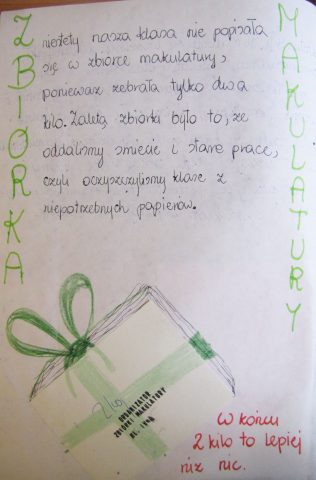 ZBIÓRKA
MAKULATURY
niestety nasza klasa nie popisała
się w zbiórce makulatury,
ponieważ zebrała tylko dwa
kilo. Zaletą zbiórki było to, że
oddaliśmy śmiecie i stare prace,
czyli oczyszczyliśmy klasę z
niepotrzebnych papierów.
2kg
ORGANIZATOR
ZBIÓRKI MAKULATURY
W końcu
2 kilo to lepiej
niż nic.